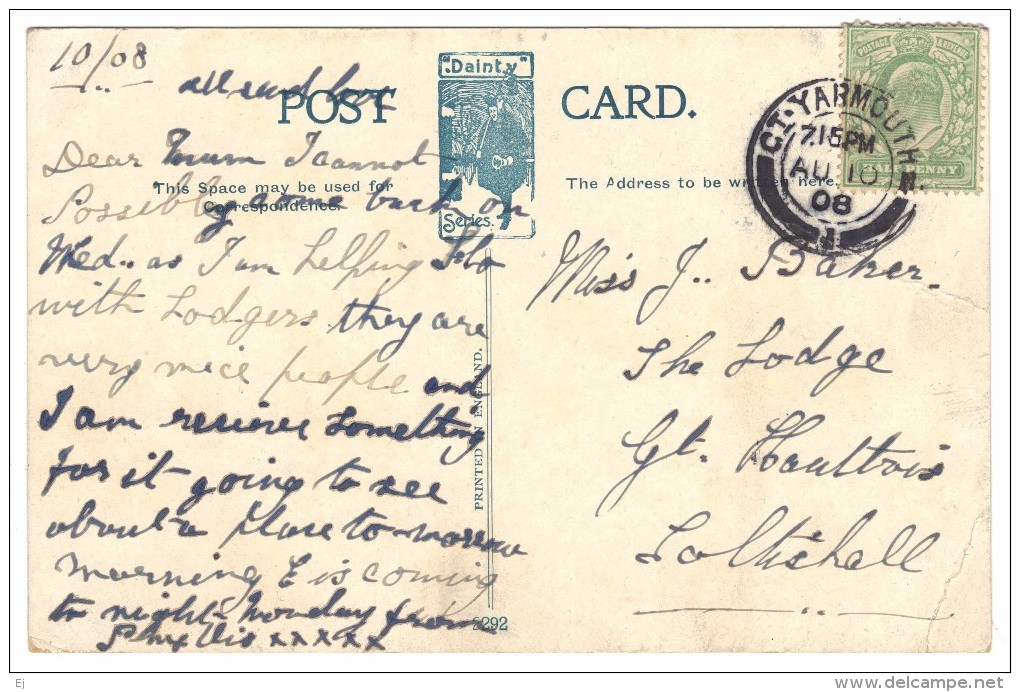 10/08
all send love
POST CARD.
"Dainty"
Series.
This Space may be used for
Correspondence.
The Address to be written here.
Dear Mum I cannot
Possibly come back on
Wed.. as I am helping Flo
with Lodgers they are
very nice people and
I am reciever something
for it going to see
about a place to-morrow
morning E is coming
to night- Monday from
Phyllis xxxxx
PRINTED IN ENGLAND.
2292
POSTAGE & REVENUE
HALFPENNY
GT. YARMOUTH
7.15PM
AU 10
08
1
Miss J.. Baker.
The Lodge
Gt. Hauttois
Coltishall
Ej
delcampe.net